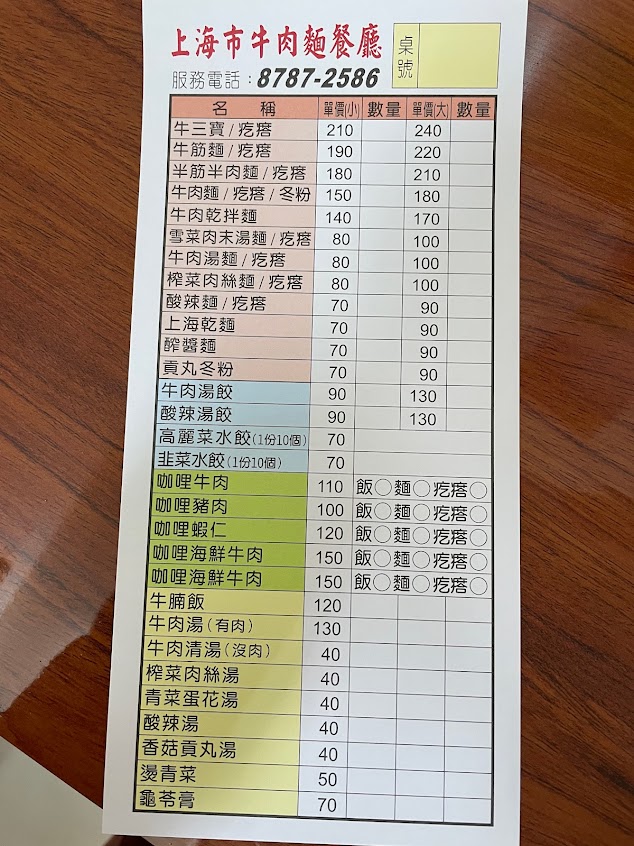 上海市牛肉麵餐廳 桌號
服務電話：8787-2586
名稱 單價(小) 數量 單價(大) 數量
牛三寶/疙瘩 210 240
牛筋麵/疙瘩 190 220
半筋半肉麵/疙瘩 180 210
牛肉麵/疙瘩/冬粉 150 180
牛肉乾拌麵 140 170
雪菜肉末湯麵/疙瘩 80 100
牛肉湯麵/疙瘩 80 100
榨菜肉絲麵/疙瘩 80 100
酸辣麵/疙瘩 70 90
上海乾麵 70 90
醡醬麵 70 90
貢丸冬粉 70 90
牛肉湯餃 90 130
酸辣湯餃 90 130
高麗菜水餃(1份10個) 70
韭菜水餃(1份10個) 70
咖哩牛肉 110 飯○麵○疙瘩○
咖哩豬肉 100 飯○麵○疙瘩○
咖哩蝦仁 120 飯○麵○疙瘩○
咖哩海鮮牛肉 150 飯○麵○疙瘩○
咖哩海鮮牛肉 150 飯○麵○疙瘩○
牛腩飯 120
牛肉湯(有肉) 130
牛肉清湯(沒肉) 40
榨菜肉絲湯 40
青菜蛋花湯 40
酸辣湯 40
香菇貢丸湯 40
燙青菜 50
龜苓膏 70